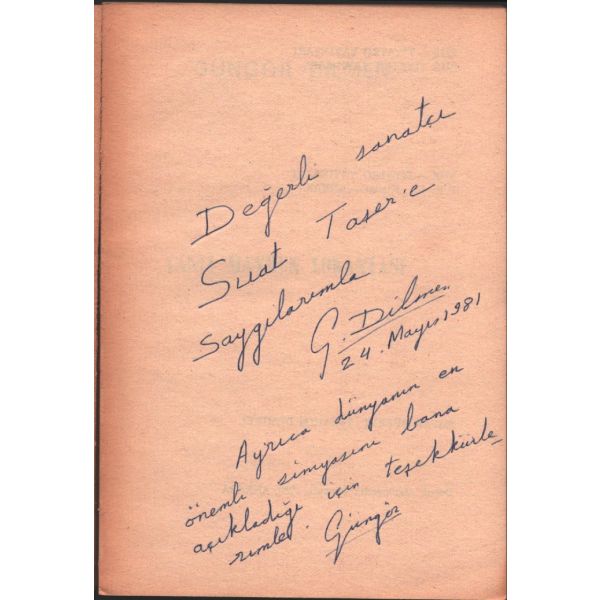 Değerli sanatçı
Suat Taşer'e
Saygılarımla
G. Dilmen
24. Mayıs 1981
Ayrıca dünyanın en
önemli simyasını bana
açıkladığı için teşekkürle
rimle.
Güngör